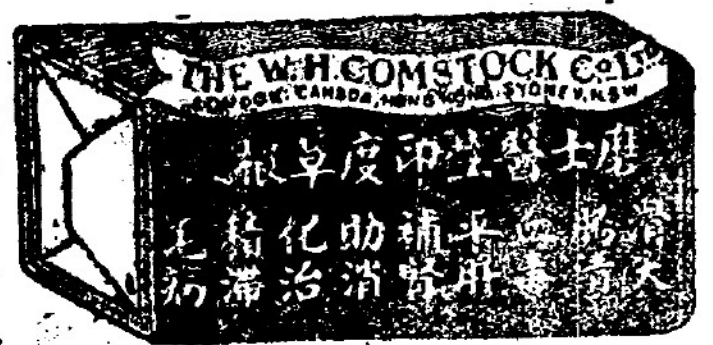 THE W.H. COMSTOCK CO. LTD.
LONDON, CANADA, HONG KONG, SYDNEY, N.S.W
磨士醫生印度草根
滑大
腸清
血毒
平肝
補腎
助消
化治
積滯
毛病